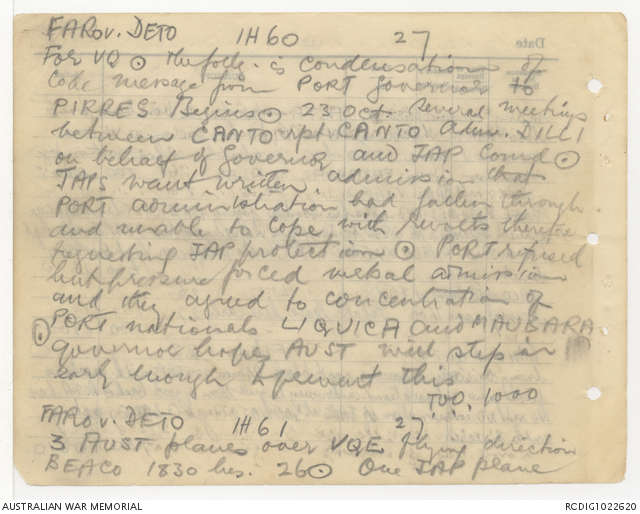 FAROV. DETO 1H60 27
For VQ ⊙ The follg. is condensation of
Code message from PORT Governor to
PIRRES Begins ⊙ 23 Oct. Several meetings
between CANTO rpt CANTO Adm. DILLI
on behalf of Governor and JAP Comd ⊙
JAPS want written admission that
PORT administration had fallen through
and unable to cope with revolts therefore
requesting JAP protection ⊙ PORT refused
but pressure forced verbal admission
and they agreed to concentration of
PORT nationals LIQUICA and MAUBARA
⊙ governor hopes AUST will step in
early enough to prevent this
TOO. 1000
FAROV. DETO 1H61 27
3 AUST planes over VQE flying direction
BEACO 1830 hrs. 26 ⊙ One JAP plane
AUSTRALIAN WAR MEMORIAL RCDIG1022620